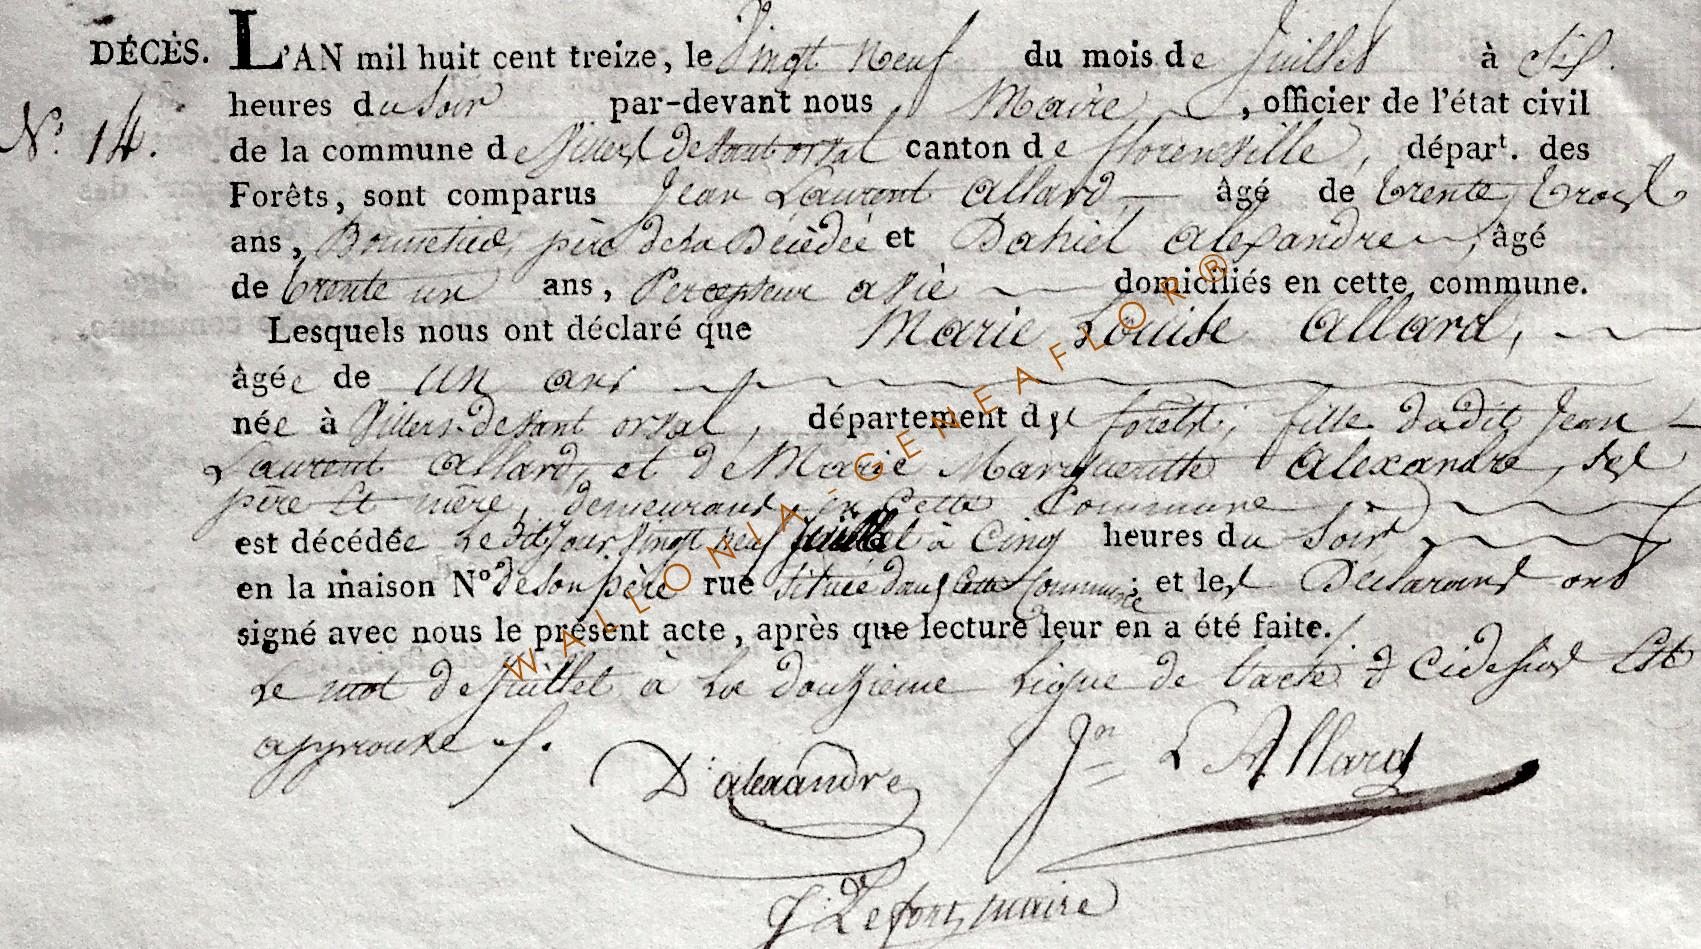 DÉCÈS. L'AN mil huit cent treize, le Vingt Neuf du mois de Juillet à Six
N.° 14. heures du Soir par-devant nous Maire, officier de l'état civil
de la commune de Villers devant orval canton de florenville, dépar^t. des
Forêts, sont comparus Jean Laurent Allard âgé de trente trois
ans, père de la Décédée et Daniel Alexandre, âgé
de trente un ans, Percepteur domiciliés en cette commune.
Lesquels nous ont déclaré que Marie Louise Allard,
âgée de un ans
née à Villers devant orval, département des forêts, fille dudit Jean
Laurent Allard, et de Marie Margueritte Alexandre, ses
père et mère, demeurans en Cette Commune
est décédée Le dit jour Vingt neuf Juillet à Cinq heures du Soir
en la maison N° de son père rue Située dans Cette Commune; et les Declarans ont
signé avec nous le présent acte, après que lecture leur en a été faite.
Le mot de Juillet à La douzieme Ligne de l'acte Cidessus Est
approuvé
D. alexandre Jn L Allard
Lefort, maire
WALLONIA-GENEAFLOR®